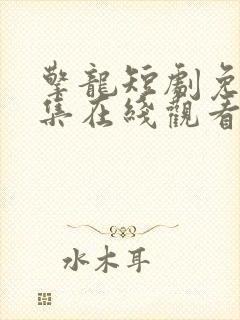 擎龍短劇免
集在綫觀看
水木耳